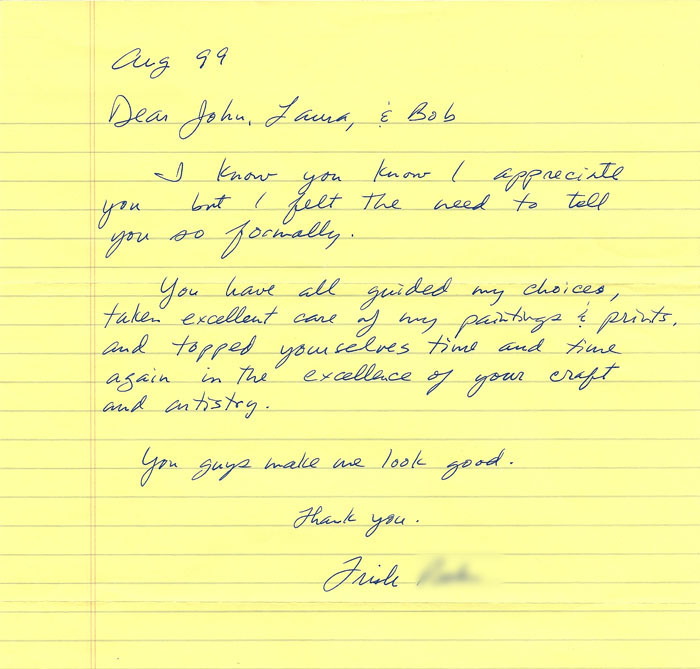 Aug 99
Dear John, Laura, & Bob
I know you know I appreciate
you but I felt the need to tell
you so formally.
You have all guided my choices,
taken excellent care of my paintings & prints,
and topped yourselves time and time
again in the excellence of your craft
and artistry.
You guys make me look good.
Thank you.
Trish